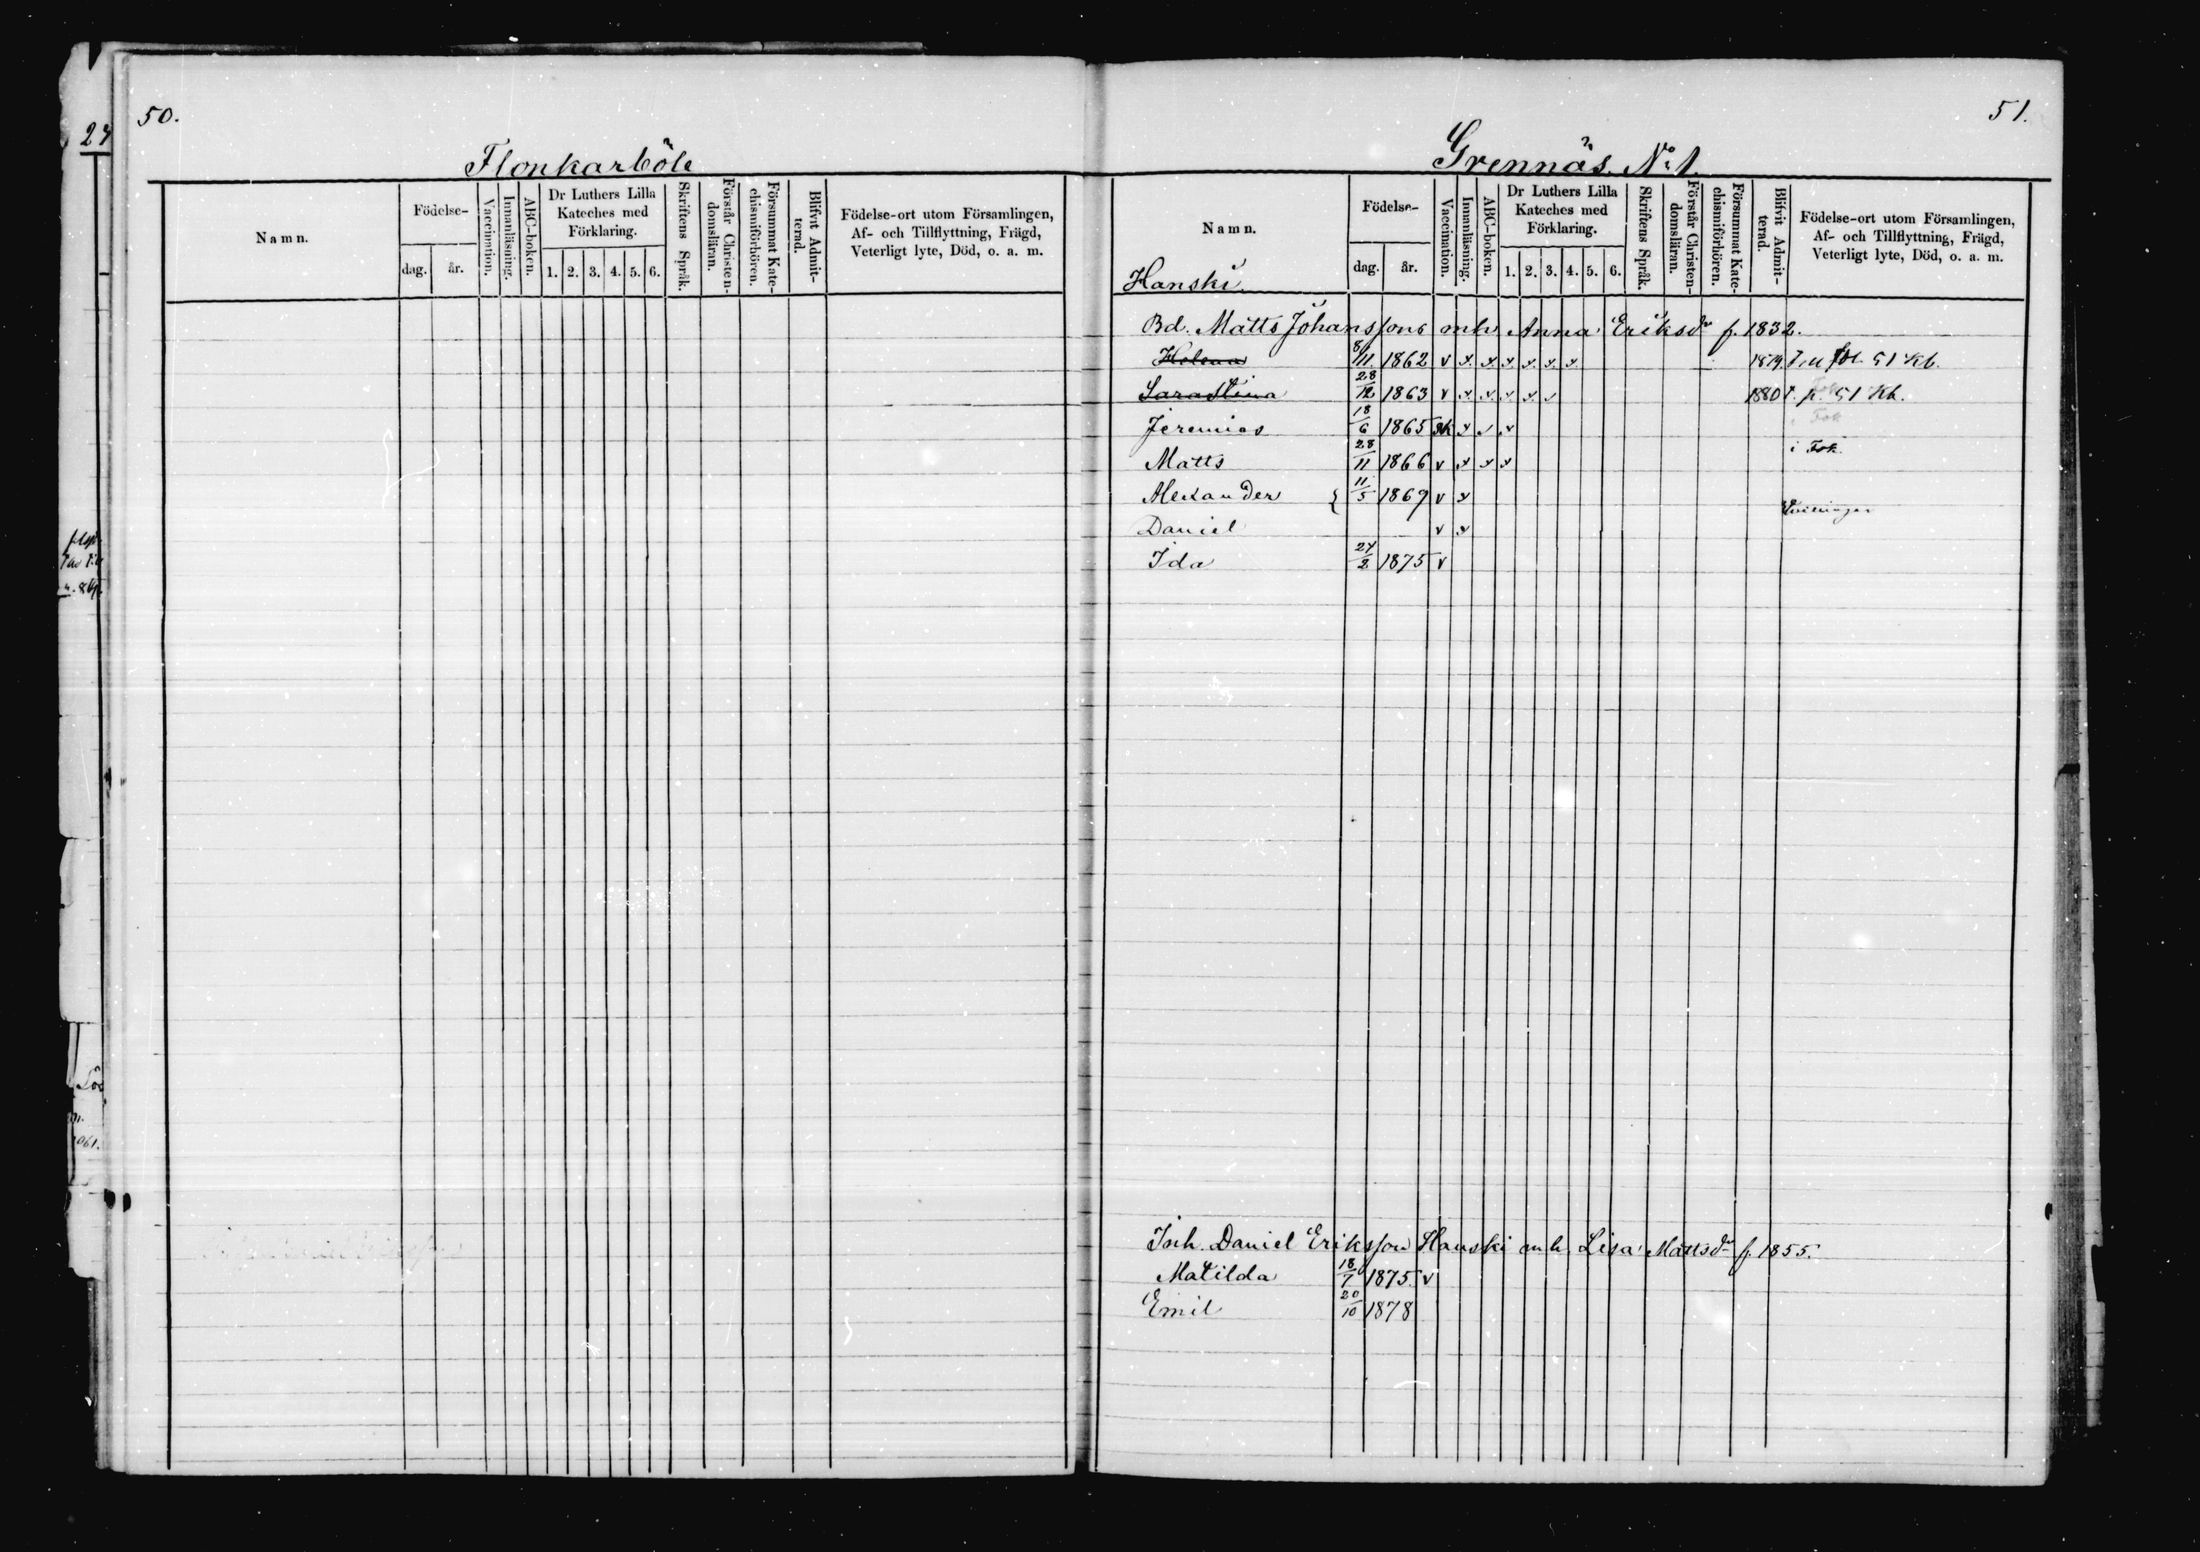 50.
27
Flonkarböle
Namn.
Födelse-
dag.
år.
Vaccination.
Innanläsning.
ABC-boken.
Dr Luthers Lilla
Kateches med
Förklaring.
1. 2. 3. 4. 5. 6.
Skriftens Språk.
Förstår Christen-
domsläran.
Försummat Kate-
chismiförhören.
Blifvit Admit-
terad.
Födelse-ort utom Församlingen,
Af- och Tillflyttning, Frägd,
Veterligt lyte, Död, o. a. m.
51.
Grennäs. No 1.
Namn.
Hanski.
Födelse-
dag.
år.
Vaccination.
Innanläsning.
ABC-boken.
Dr Luthers Lilla
Kateches med
Förklaring.
1. 2. 3. 4. 5. 6.
Skriftens Språk.
Förstår Christen-
domsläran.
Försummat Kate-
chismiförhören.
Blifvit Admit-
terad.
Födelse-ort utom Församlingen,
Af- och Tillflyttning, Frägd,
Veterligt lyte, Död, o. a. m.
Bd. Matts Johanssons m h Anna Eriksdr f. 1832.
Helena 8/11 1862 v v v v v v v 1879 51 Kb.
Sara Stina 28/12 1863 v v v v v v 1880 51 Kb.
Jeremias 18/6 1865 v v v
Matts 28/11 1866 v v v v i Fok.
Alexander { 11/5 1869 v v Tvillingar
Daniel v v
Ida 24/2 1875 v
Inh. Daniel Eriksson Hanski m h Lisa Mattsdr f. 1855.
Matilda 18/7 1875. v
Emil 20/10 1878